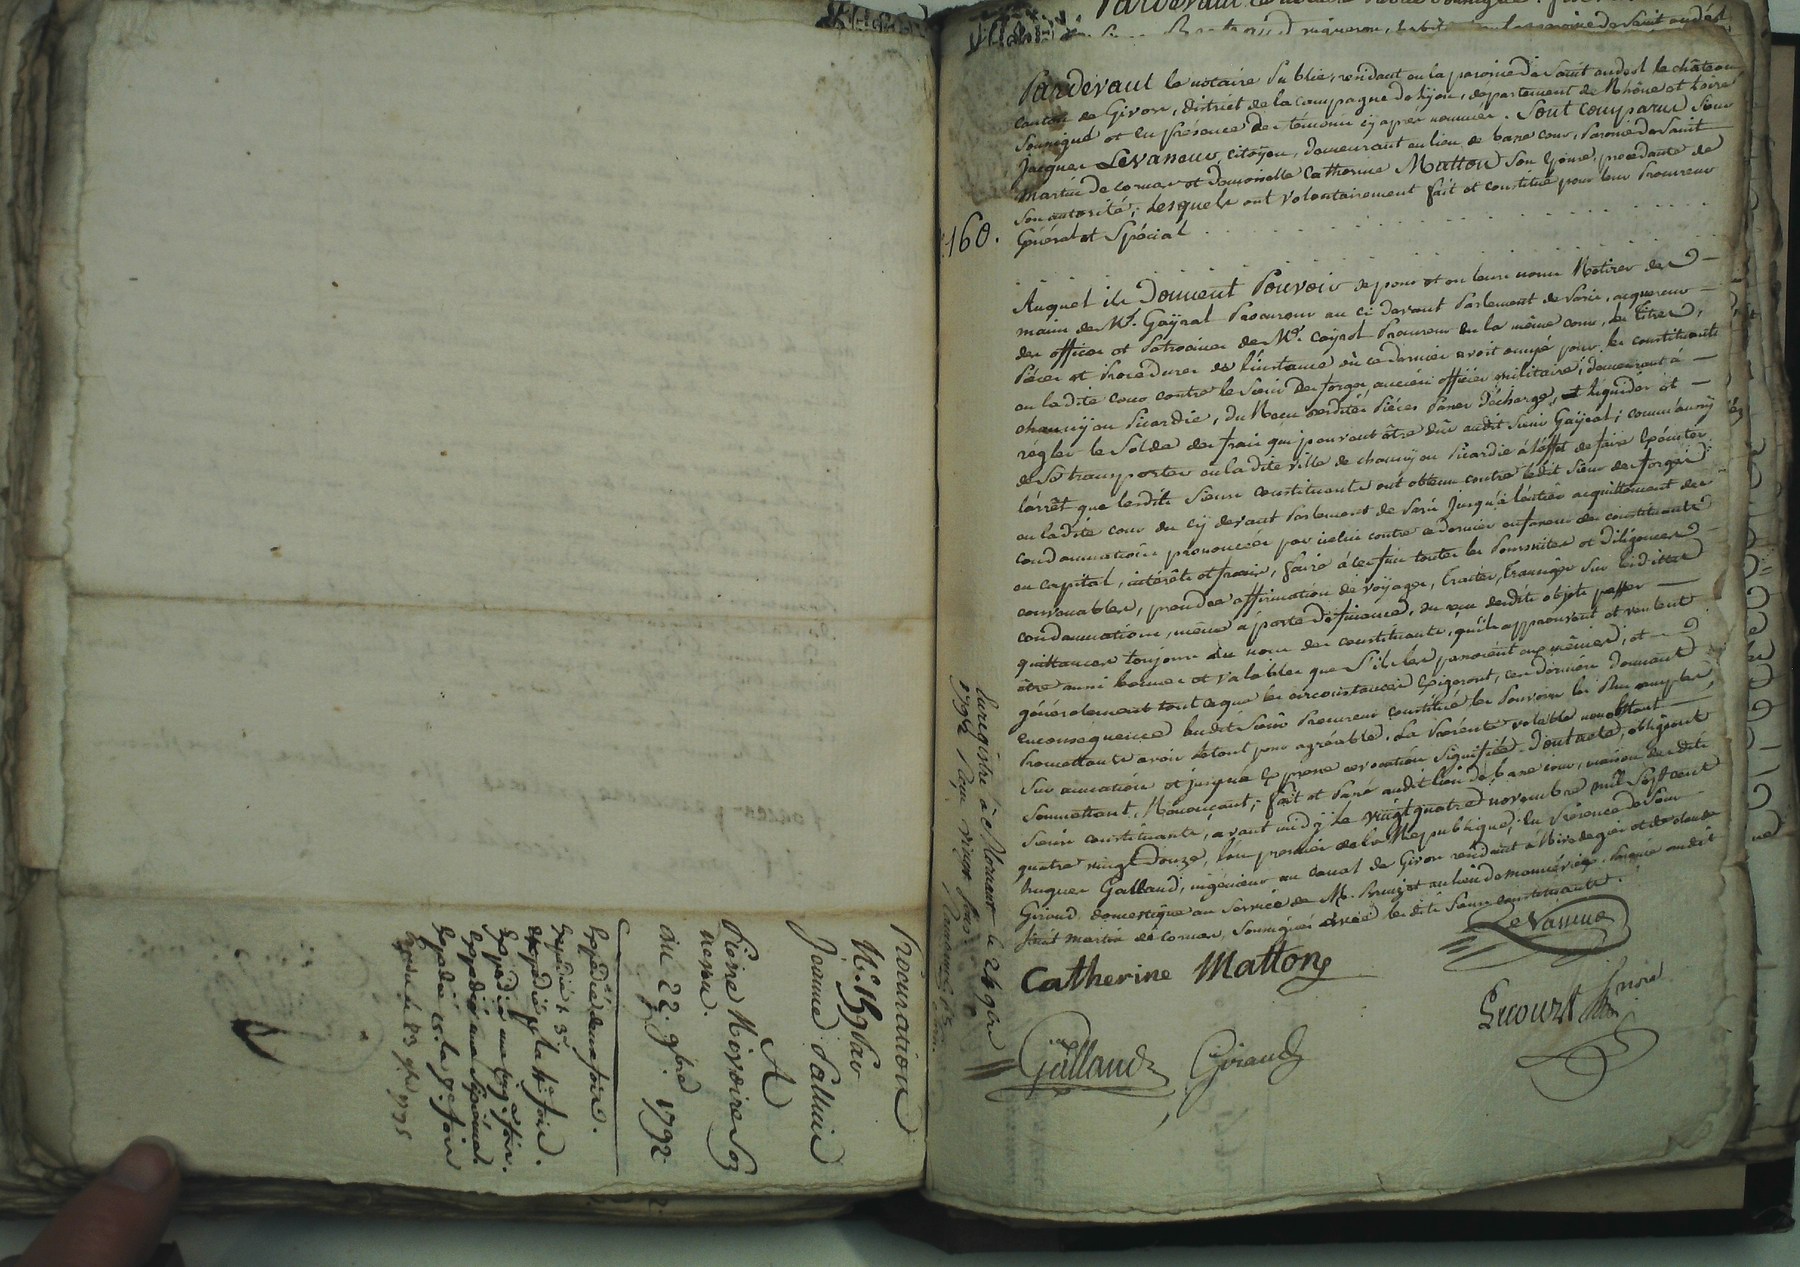 Procuration
N.° 159 Par
Jeanne Palluid
A
Pierre
neveu.
du 22. 9bre 1792
Expédié deux fois.
Expédié la 3e
Expédié pr la 4e fois.
Expédié une cinq.e fois.
Expédié une sixième.
Expédié
9bre 1795
Pardevant
Pardevant le notaire Public, résidant en la paroisse de Saint andéol le château
canton de Givors, district de la campagne de Lyon, département de Rhône et Loire
Soussigné et en présence des témoins cy après nommés. Sont comparus sieur
Jacques Levasseur, citoyen, demeurant au lieu de basse cour, Paroisse de Saint
Martin de Cornas et demoiselle Catherine Matton Son épouse, procédante de
Son autorité; Lesquels ont volontairement fait et constitué pour leur Procureur
Général et Spécial
160.
Auquel ils Donnent Pouvoir de pour et en leurs noms Retirer des
mains de Mr. Gayral Procureur au ci devant Parlement de Paris, acquereur
des offices et Patrocines de Mr. Cayrol Procureur en la même cour, les titres,
Pièces et Procédures de l'instance où ce dernier avoit occupé pour les constituants
en ladite cour contre le Sieur Desforges, ancien officier militaire, demeurant à
chauny en Picardie, du Reçu desdites Pièces Passer Décharge, et liquider et
régler le Solde des frais qui peuvent être dûs audit Sieur Gayral; comm'aussy
de Se transporter en ladite ville de chauny en Picardie à l'effet de faire Exécuter
l'arrêt que lesdits Sieurs constituants ont obtenu contre ledit Sieur desforges
en ladite cour du cy devant Parlement de Paris jusqu'à l'entier acquittement des
condamnations prononcées par icelui contre ce dernier en faveur des constituants
en capital, intérêts et frais, faire à ces fins toutes les Poursuites et Diligences
convenables, prendre affirmation de voyages, traiter, transiger Sur lesdittes
condamnations, même à perte de finance, du reçu desdits objets passer
quittances toujours au nom des constituants, qu'ils approuvent et veulent
être aussi bonnes et valables que S'ils les passoient eux mêmes, et
généralement tout ce que les circonstances Exigeront, ces derniers donnant
en conséquence audit Sieur Procureur constitué les Pouvoirs les Plus amples,
Promettants avoir letout pour agréable. La Présente valable nonobstant
Surannation et jusqu'à Expresse revocation Signifiée. Dont acte, obligeant
Soumettant, Renonçant; fait et Passé audit lieu de basse cour, maison desdits
Sieurs constituants, avant midy le vingt quatre novembre mil Sept cent
quatre vingt Douze, l'an premier de la République, En Présence de Sieur
hugues Galland, ingénieur au canal de Givors résidant à Rivedegier et de claude
Giraud domestique au Service de Mr. au lieu de Paroisse audit
Saint Martin de Cornas, Soussignés avec lesdits Sieurs constituants.
Levasseur
Catherine Matton
Galland
Giraud
nore
Enregistré à Mornant le 24 9bre
1792 Reçu vingt Sous.